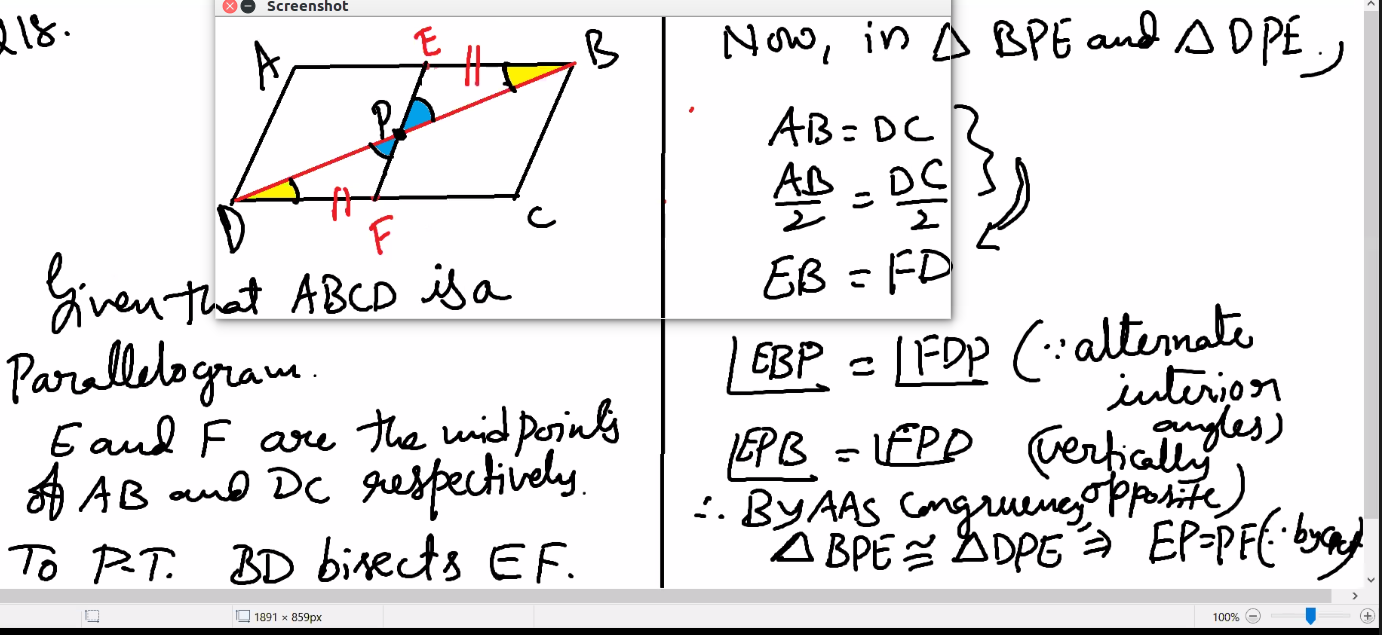 218.
Screenshot
A
E
B
P
D
F
C
Given that ABCD is a
Parallelogram.
E and F are the midpoints
of AB and DC respectively.
To P.T. BD bisects EF.
Now, in △ BPE and △ DPE.,
AB = DC
AB/2 = DC/2
EB = FD
∠EBP = ∠FDP (∵ alternate
interior
angles)
∠EPB = ∠FPD (vertically
opposite)
∴ By AAS congruency,
△ BPE ≅ △DPE ⇒ EP=PF(∵ by
1891 × 859px
100%